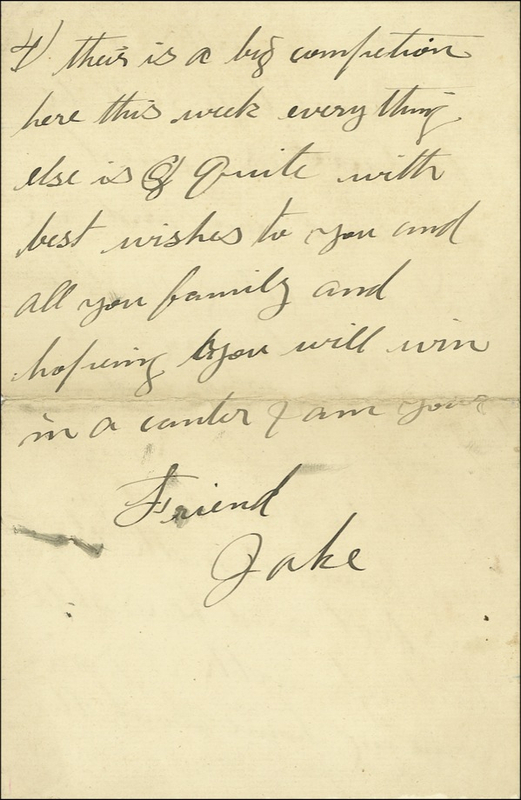 4) this is a big competion
here this week everything
else is Quite with
best wishes to you and
all you family and
hoping you will win
in a canter I am your
Friend
Jake